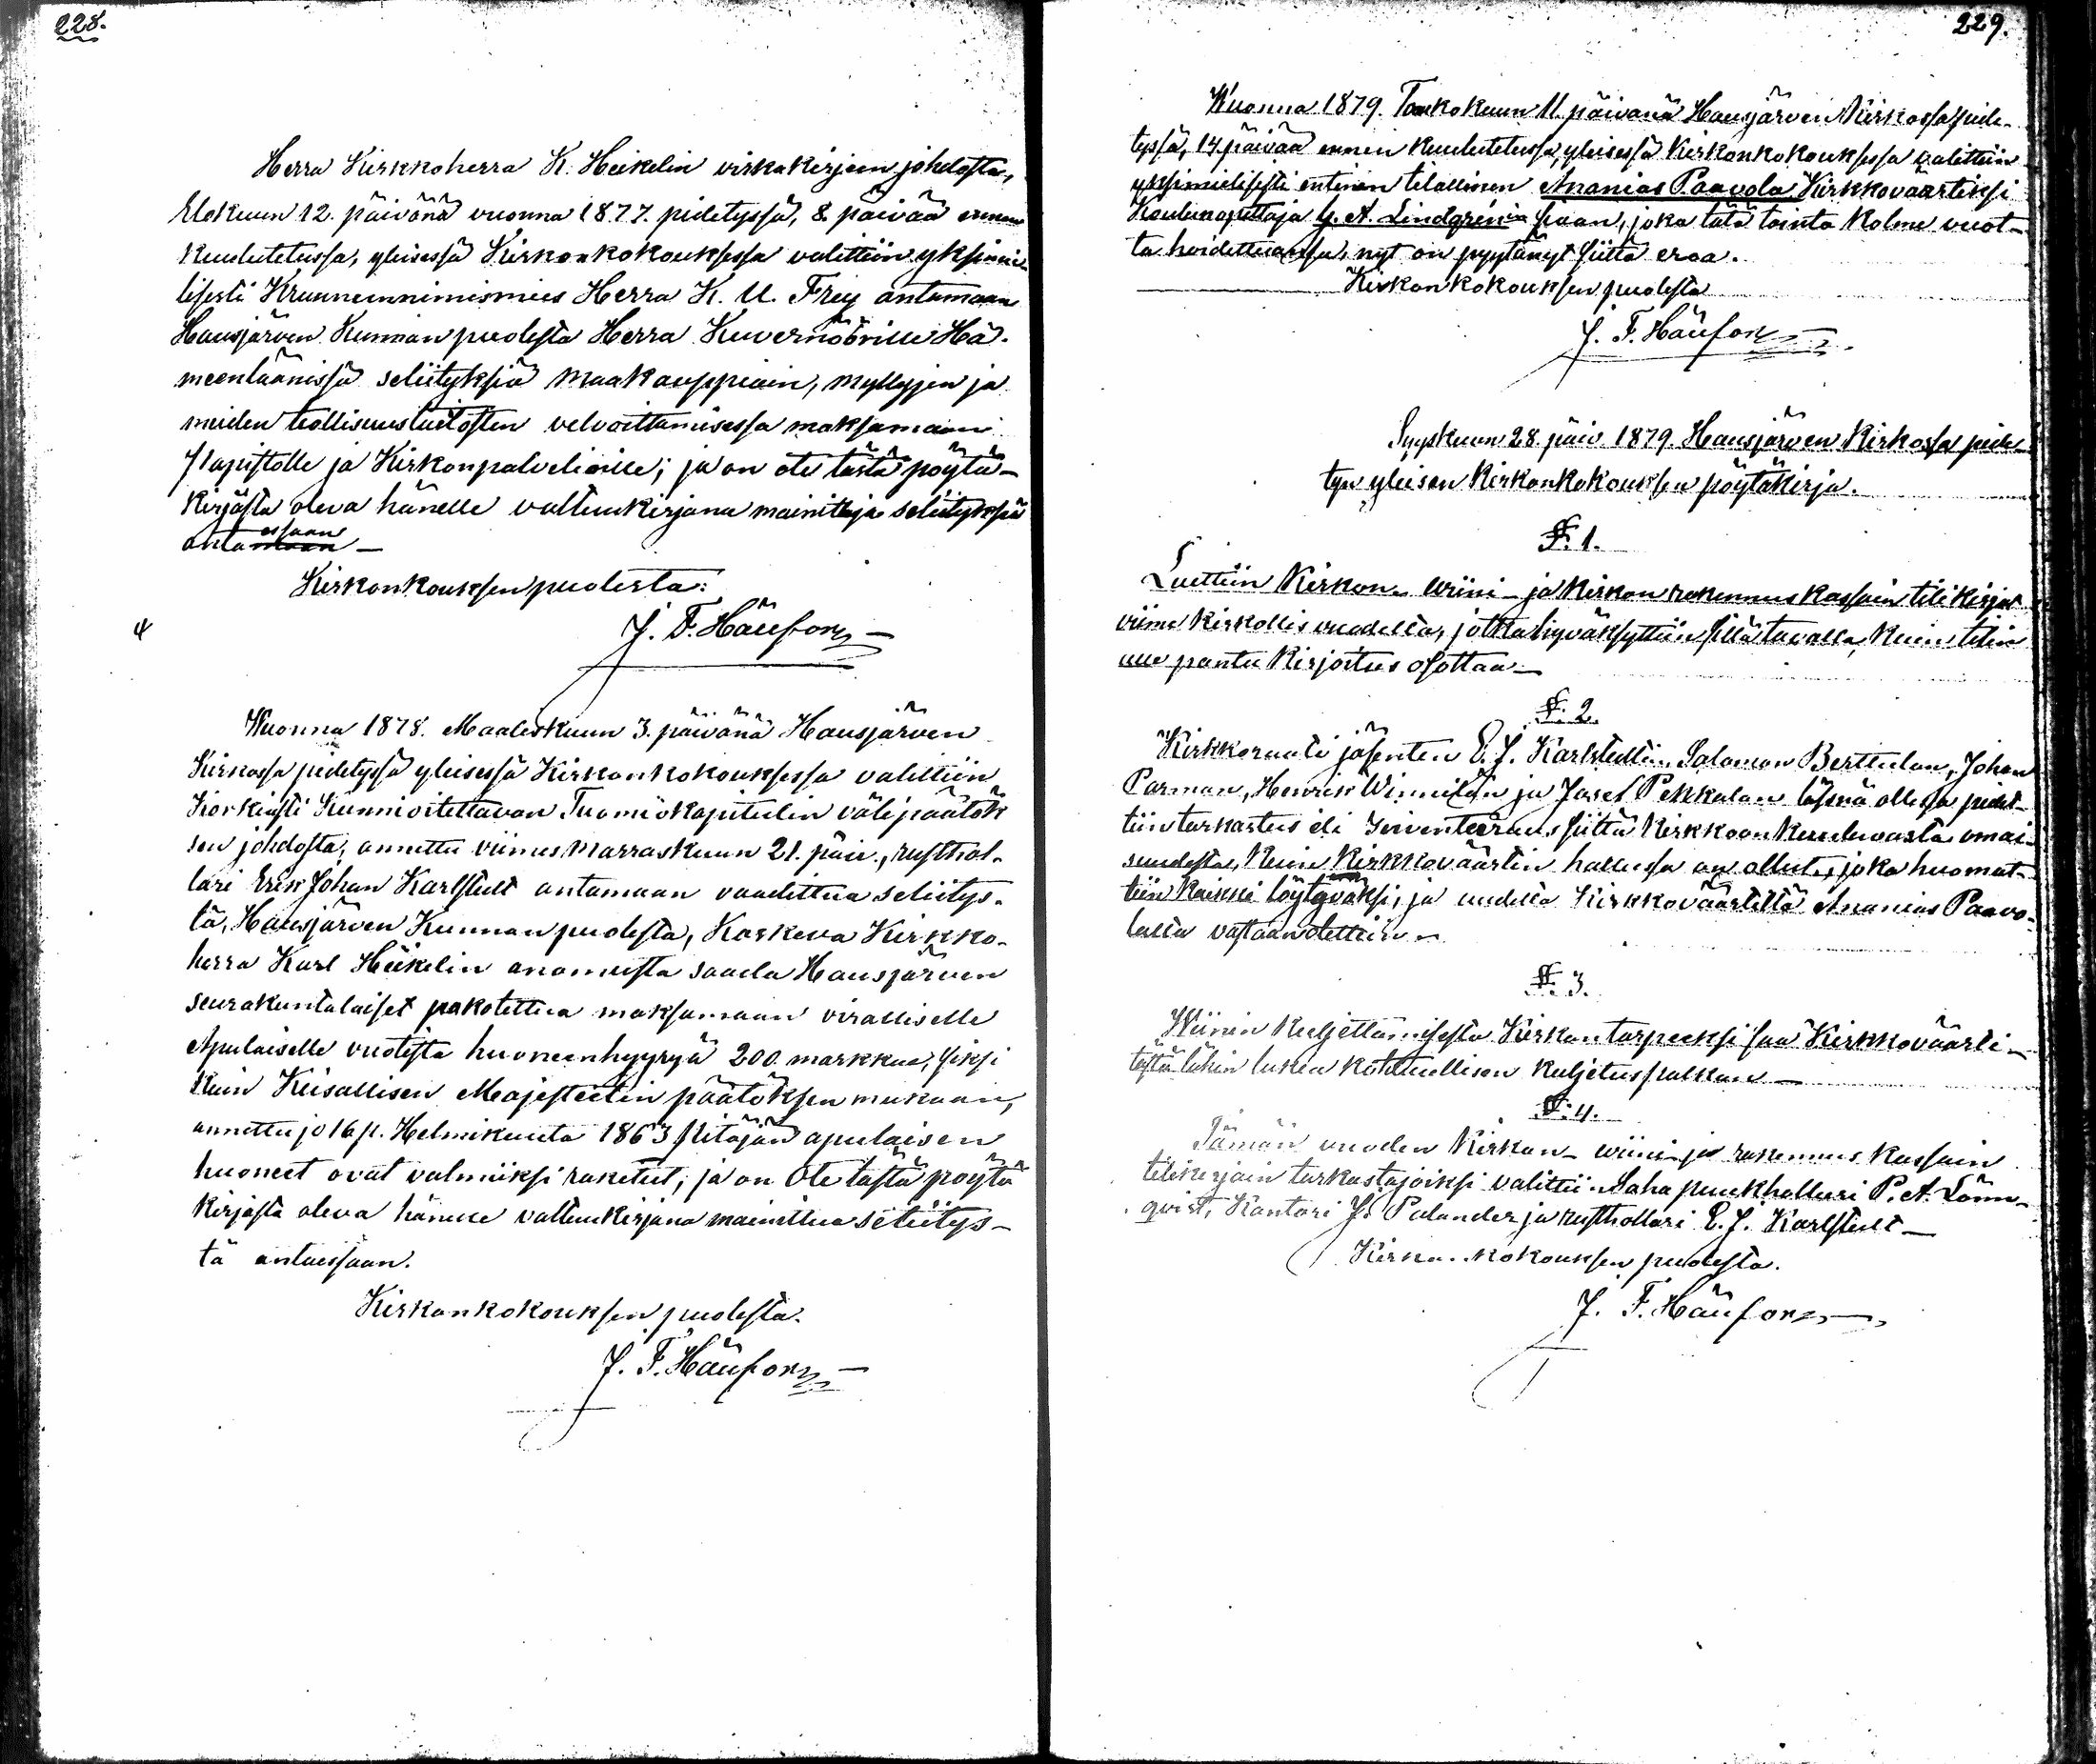 228.
Herra Kirkkoherra K. Heikelin virkakirjeen johdosta,
Elokuun 12. päivänä vuonna 1877. pidetyssä, 8. päivää ennen
kuulutetussa, yleisessä Kirkonkokouksessa valittiin yksimie-
lisesti Kruununnimismies Herra K. U. Frey antamaan
Hausjärven Kunnan puolesta Herra Kuvernöörille Hä-
meenläänissä selityksiä maakauppiain, myllyjen ja
muiden teollisuuslaitosten velvoittamisessa maksamaan
Papistolle ja Kirkonpalvelioille; ja on ote tästä pöytä-
kirjasta oleva hänelle valtuukirjana mainittuja selityksiä
antamaan essaan —
Kirkonkouksen puolesta:
J. F. Häufors
Wuonna 1878. Maaliskuun 3. päivänä Hausjärven
Kirkossa pidetyssä yleisessä Kirkonkokouksessa valittiin
Korkiasti Kunnioitettavan Tuomiokapitulin välipäätök
sen johdosta, annettu viimes Marraskuun 21. päiv., rusthol-
lari Erik Johan Karlstedt antamaan vaadittua selitys-
tä, Hausjärven Kunnan puolesta, Koskeva Kirkko-
herra Karl Heikelin anomusta saada Hausjärven
seurakuntalaiset pakotettua maksamaan viralliselle
Apulaiselle vuotista huoneenhyyryä 200 markkaa, siksi
kuin Keisallisen Majesteetin päätöksen mukaan,
annettu jo 16 p. Helmikuuta 1863 Pitäjän apulaisen
huoneet ovat valmiiksi raketut; ja on Ote tästä pöytä
kirjasta oleva hänelle valtuukirjana mainittua selitys-
tä antaissaan.
Kirkonkokouksen puolesta.
J. F. Häufors
229.
Wuonna 1879. Toukokuun 11. päivänä Hausjärven Kirkossa pide-
tyssä, 14 päivää ennen kuulutetussa, yleisessä Kirkonkokouksessa valittiin
yksimielisesti entinen tilallinen Ananias Paavola Kirkkoväärtiksi
Koulunopettaja G. A. Lindgrénin sijaan, joka tätä tointa kolme vuot-
ta hoidettuansa, nyt on pyytänyt siitä eroa.
Kirkonkokouksen puolesta
J. F. Häufors
Syyskuun 28. päiv. 1879. Hausjärven Kirkossa pide-
tyn yleisen Kirkonkokouksen pöytäkirja.
§. 1.
Luettiin Kirkon- wiini- ja Kirkon rakennuskassain tilikirjat
viime kirkollis vuodelta, jotka hyväksyttiin sillä tavalla, kuin tilin
alle pantu kirjoitus osottaa —
§. 2.
Kirkkoraati jäsenten E. J. Karlstedtin, Salomon Berttulan, Johan
Parman, Henrik Winnilän ja Josef Pekkalan läsnä ollessa pidet-
tiin tarkastus eli Inventeeraus siittä Kirkkoon kuuluvasta omai-
suudesta, kuin Kirkkoväärtin hallussa on ollut, joka huomat-
tiin kaikki löytyväksi, ja uudelta Kirkkoväärtiltä Ananias Paavo-
lalta vastaanotettiin.
§. 3.
Wiinin kuljettamisesta Kirkon tarpeeksi saa Kirkkoväärti-
tästä lähin lukea kohtuullisen kuljetuspalkan —
§. 4.
Tämän vuoden Kirkon- wiini- ja rakennus kassain
tilikirjain tarkastajoiksi valittiin Saha puukhollari P. A. Lönn-
qvist, Kantori J. Palander ja rusthollari E. J. Karlstedt —
Kirkonkokouksen puolesta.
J. F. Häufors